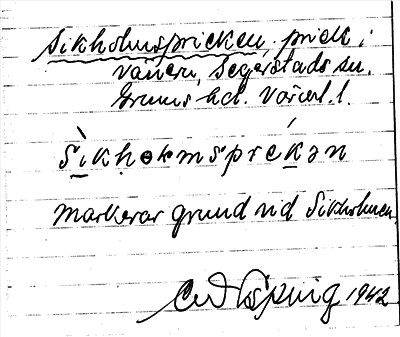 Sikholmspricken, prick i
Vänern, Segerstads sn.
Grums hd. Värml. l.
sìkhɵlmsprékən
markerar grund vid Sikholmen.
1942